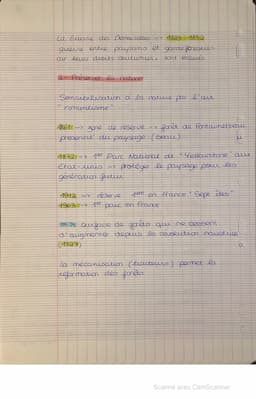 La Guerre des Demoiselles -> 1829-1832
guerre entre paysans et gardes forestiers
car leurs droits coutumiers sont
2- Préserver la nature
Sensibilisation à la nature par l'art
"romantisme"
1861 -> 1ère de réserve -> forêt de Fontainebleau
préserver du paysage (beau)
1872 -> 1er Parc National de "Yellowstone" aux
Etats-Unis -> protéger le paysage pour les
génération future
1912 -> réserve 1ère en France "Sept îles"
1963 -> 1er parc en France
surface de forêts qui ne cessent
d'augmenter depuis la révolution industrie
(1827)
La mécanisation (tracteurs) permet la
reformation des forêts
Scanné avec CamScanner